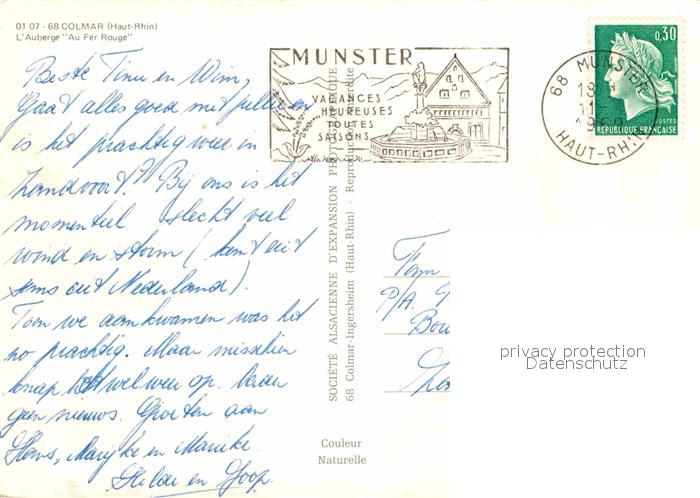 01 07 - 68 COLMAR (Haut-Rhin)
L'Auberge "Au Fer Rouge"
Beste Tinu en Wim,
Gaat alles goed met jullie en
is het prachtig weer in
Zandvoort? Bij ons is het
momenteel slecht veel
wind en storm (kent uit
ems uit Nederland).
Toen we aankwamen was het
zo prachtig. Maar misschien
knap het wel weer op. Verder
geen nieuws. Groeten aan
Hans, Marijke en Marieke.
Hilde en Joop.
MUNSTER
VACANCES
HEUREUSES
TOUTES
SAISONS
68 MUNSTER
18 H
11
1969
HAUT-RHIN
0,30
POSTES
REPUBLIQUE FRANÇAISE
SOCIÉTÉ ALSACIENNE D'EXPANSION PHOTOGRAPHIQUE
68 Colmar-Ingersheim (Haut-Rhin) - Reproduction interdite
Fam
P/A.
Bou
privacy protection
Datenschutz
Couleur
Naturelle